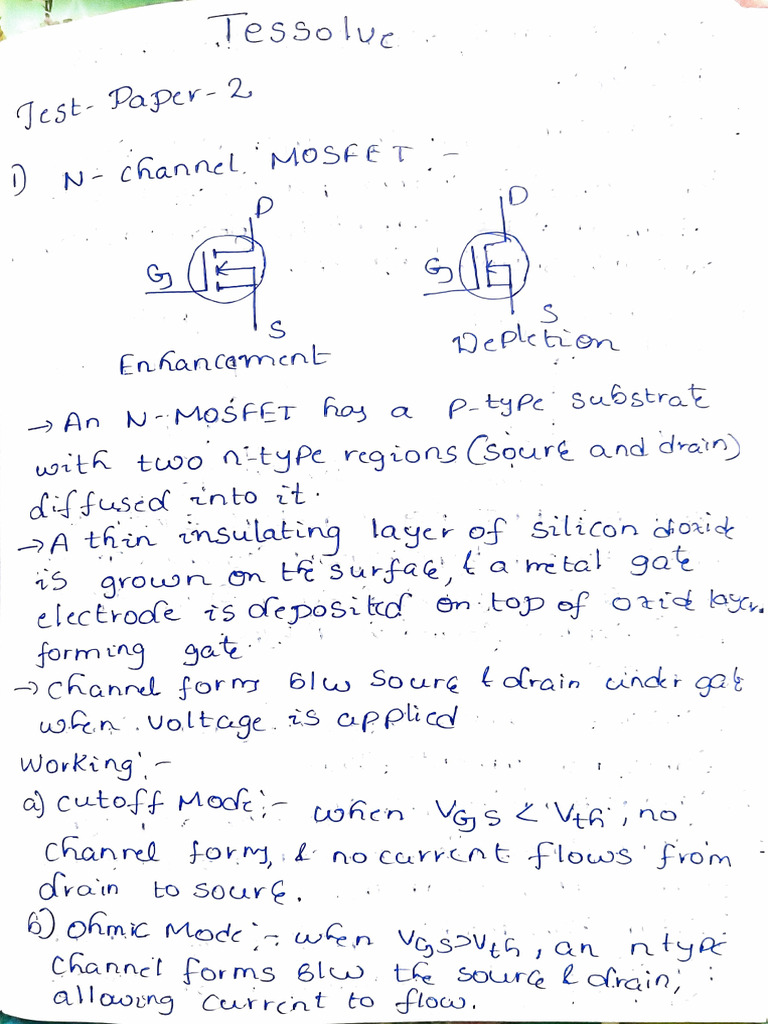 Tessolve
Test-Paper-2
1) N-channel MOSFET :-
D
D
G
G
S
S
Enhancement
Depletion
→ An N-MOSFET has a P-type substrate
with two n-type regions (source and drain)
diffused into it.
→ A thin insulating layer of silicon dioxide
is grown on the surface, & a metal gate
electrode is deposited on top of oxide layer,
forming gate.
→ channel forms b/w source & drain under gate
when voltage is applied
Working:-
a) cutoff Mode:- when VGS < Vth, no
channel forms, & no current flows from
drain to source.
b) ohmic Mode:- when VGS>Vth, an n type
channel forms b/w the source & drain,
allowing current to flow.